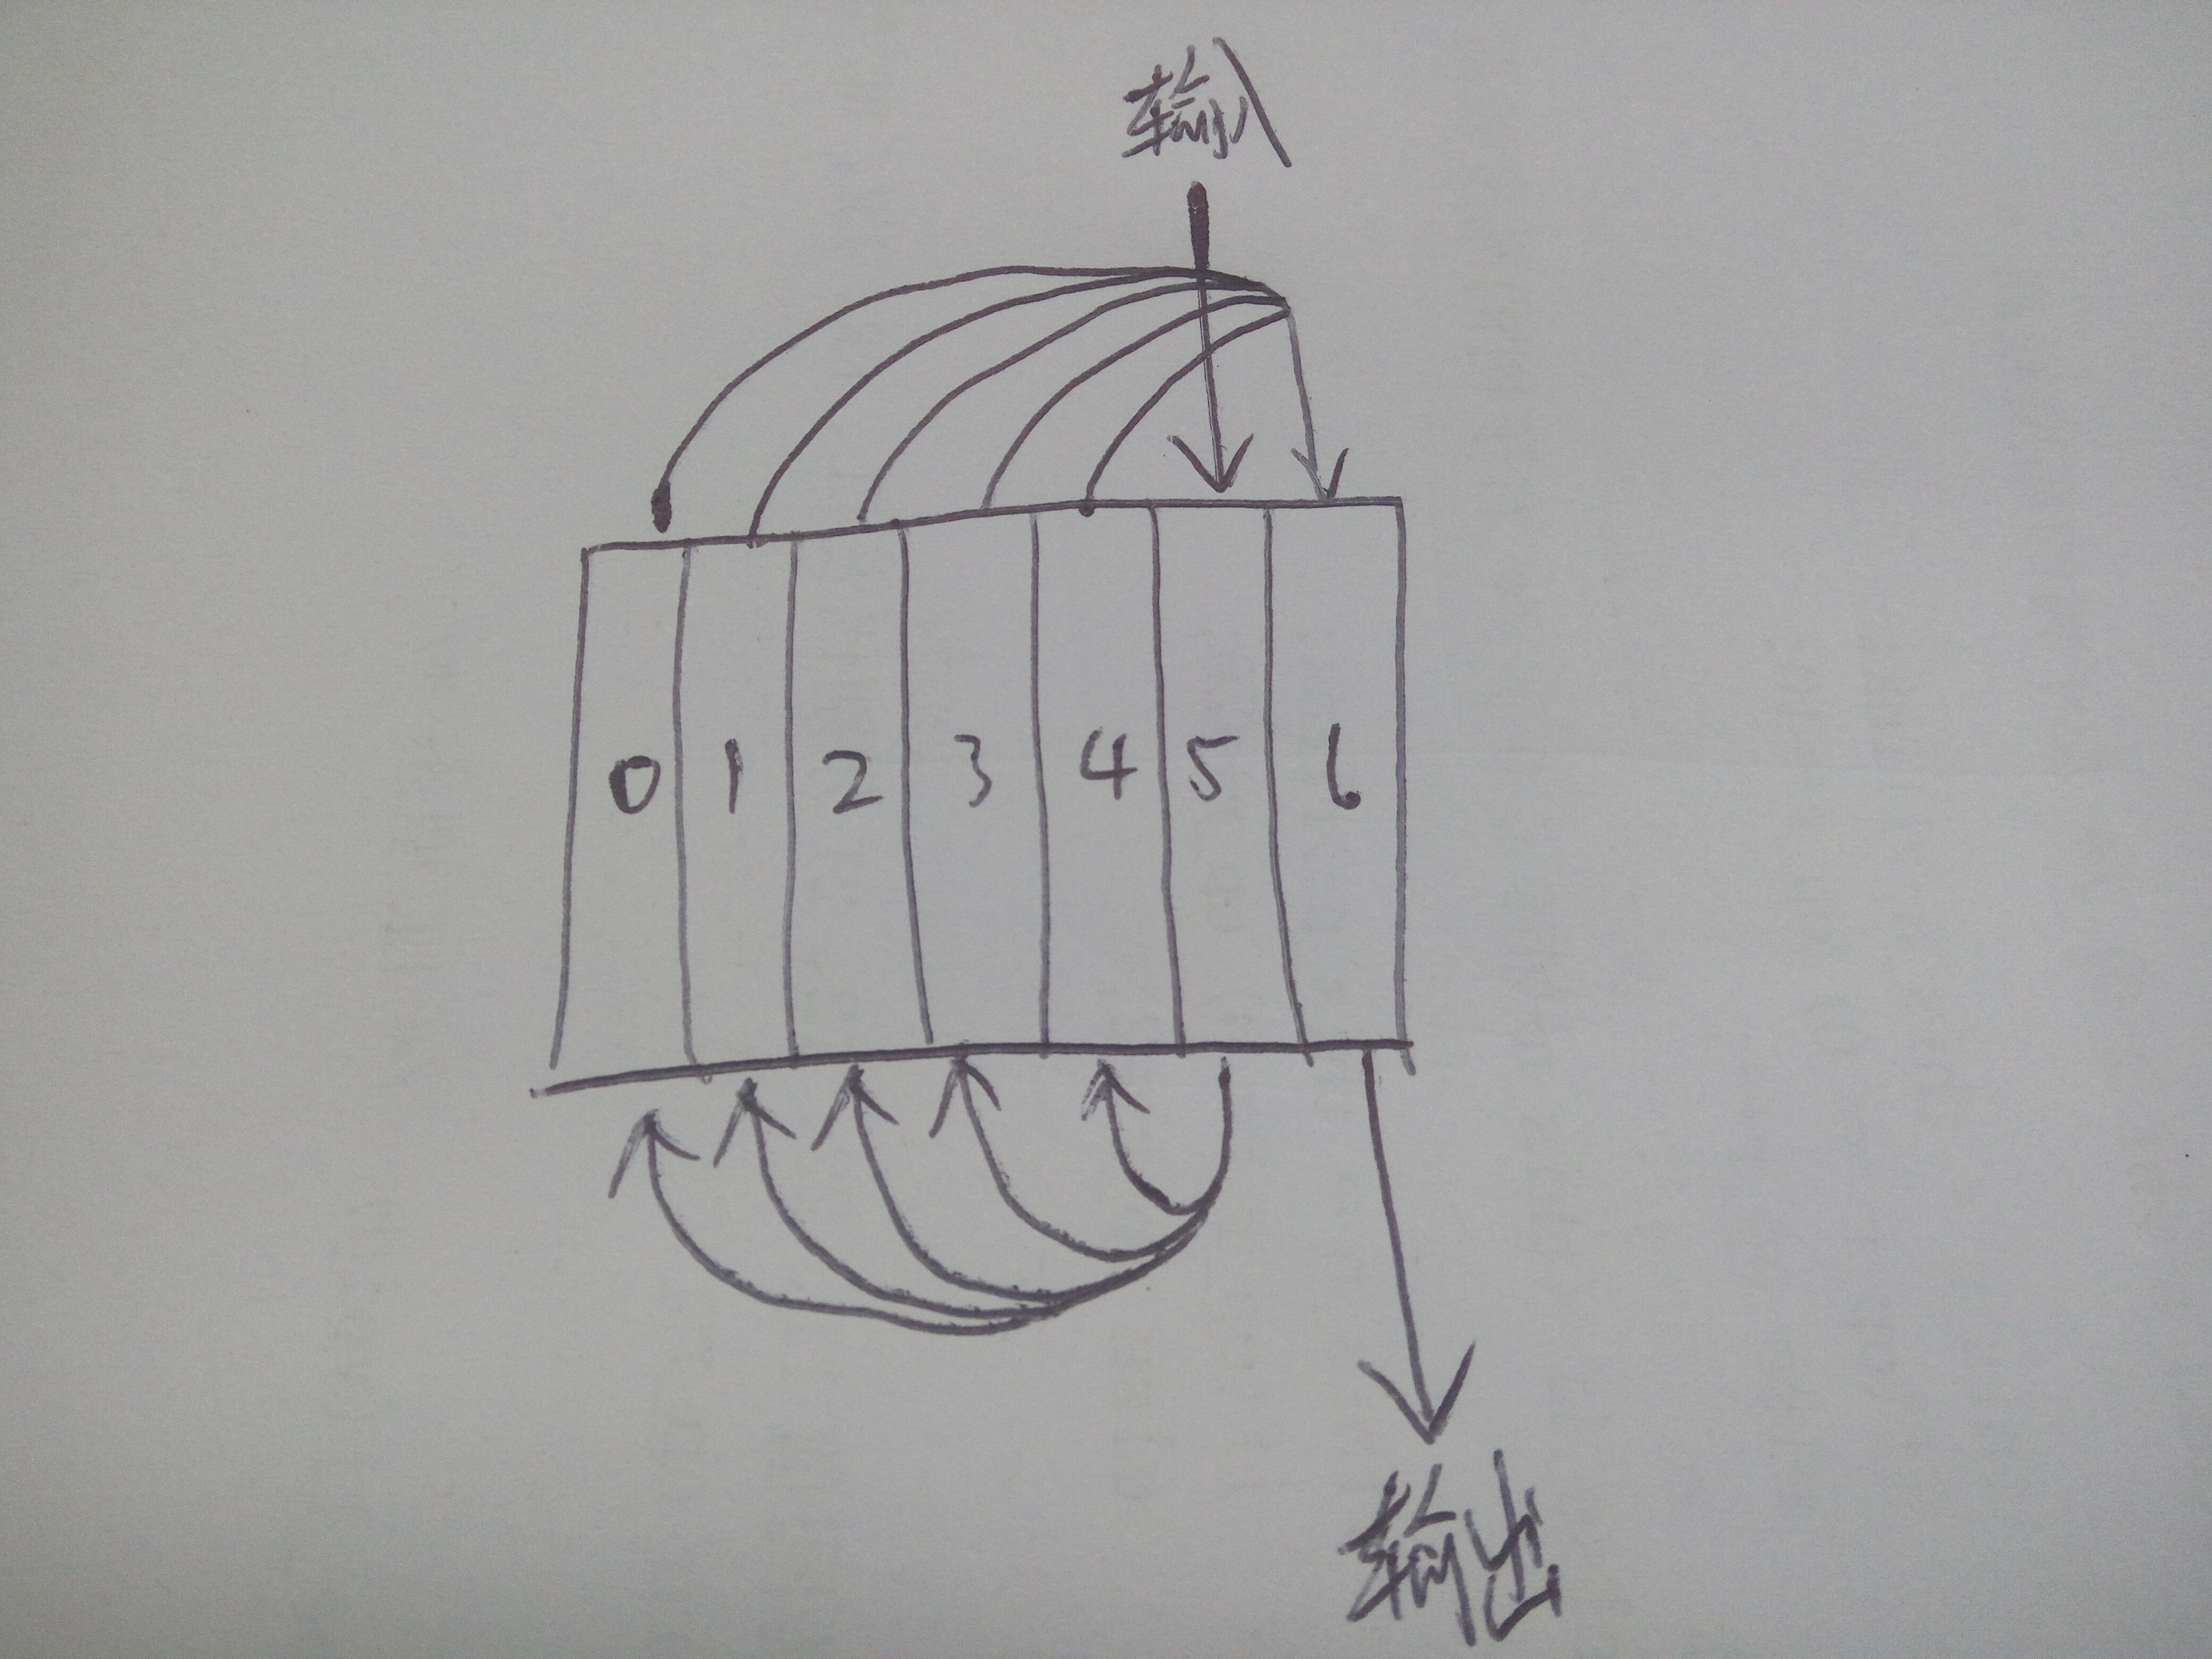 输入
0 1 2 3 4 5 6
输出